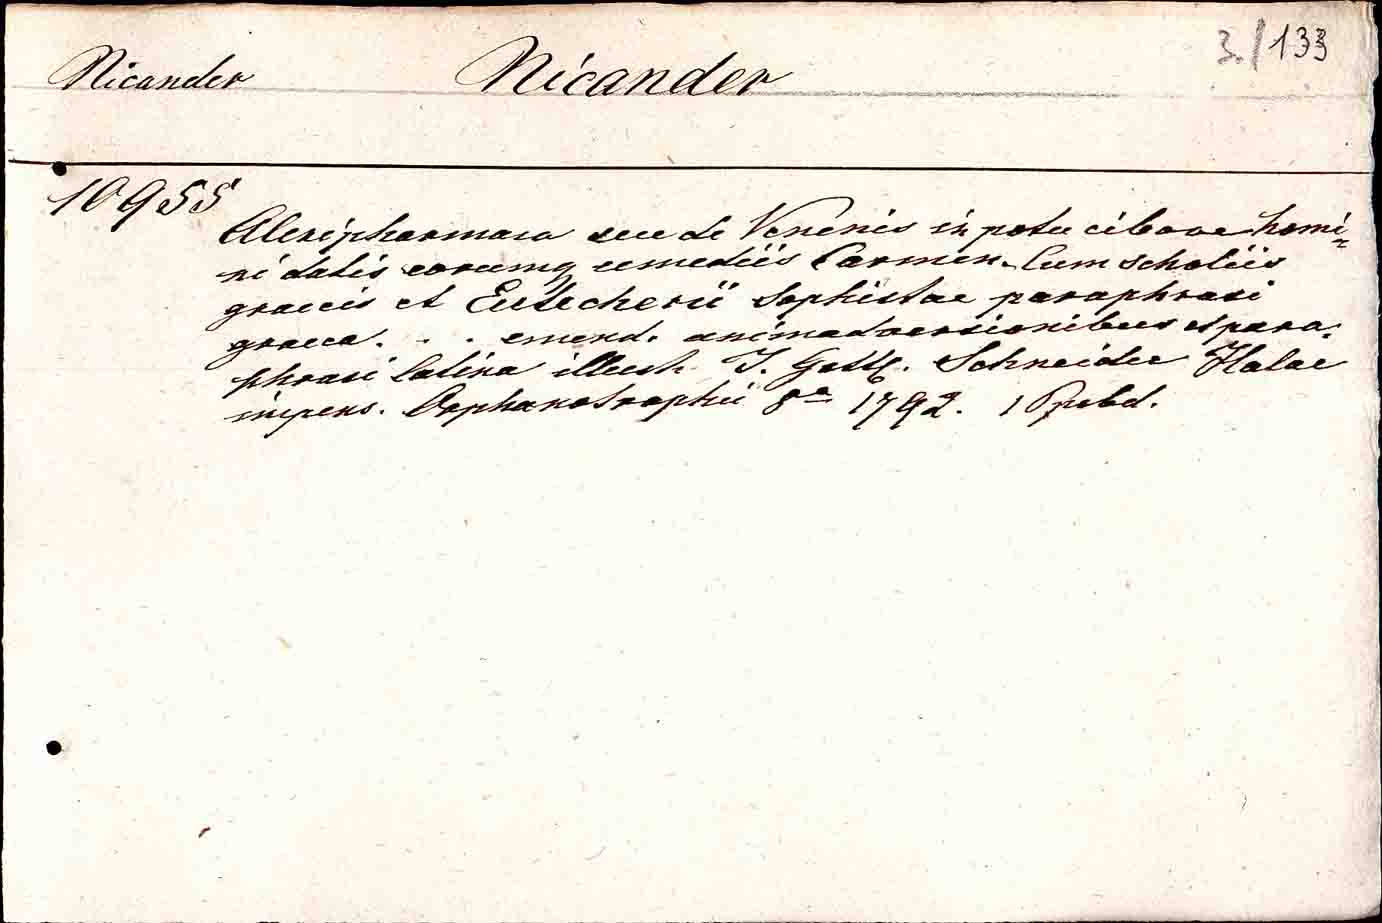 3./133
Nicander Nicander
10955
Alexipharmaca seu de Venenis in potu cibove homi=
ni datis eorumq remediis Carmen. Cum scholiis
graecis et Eutecherii Sophistae paraphrasi
graeca. . . emend. animadversionibus et para=
phrasi latina illustr. J. Gottl. Schneider Halae
impens. Orphanotrophii 8° 1792. 1 Ppbd.